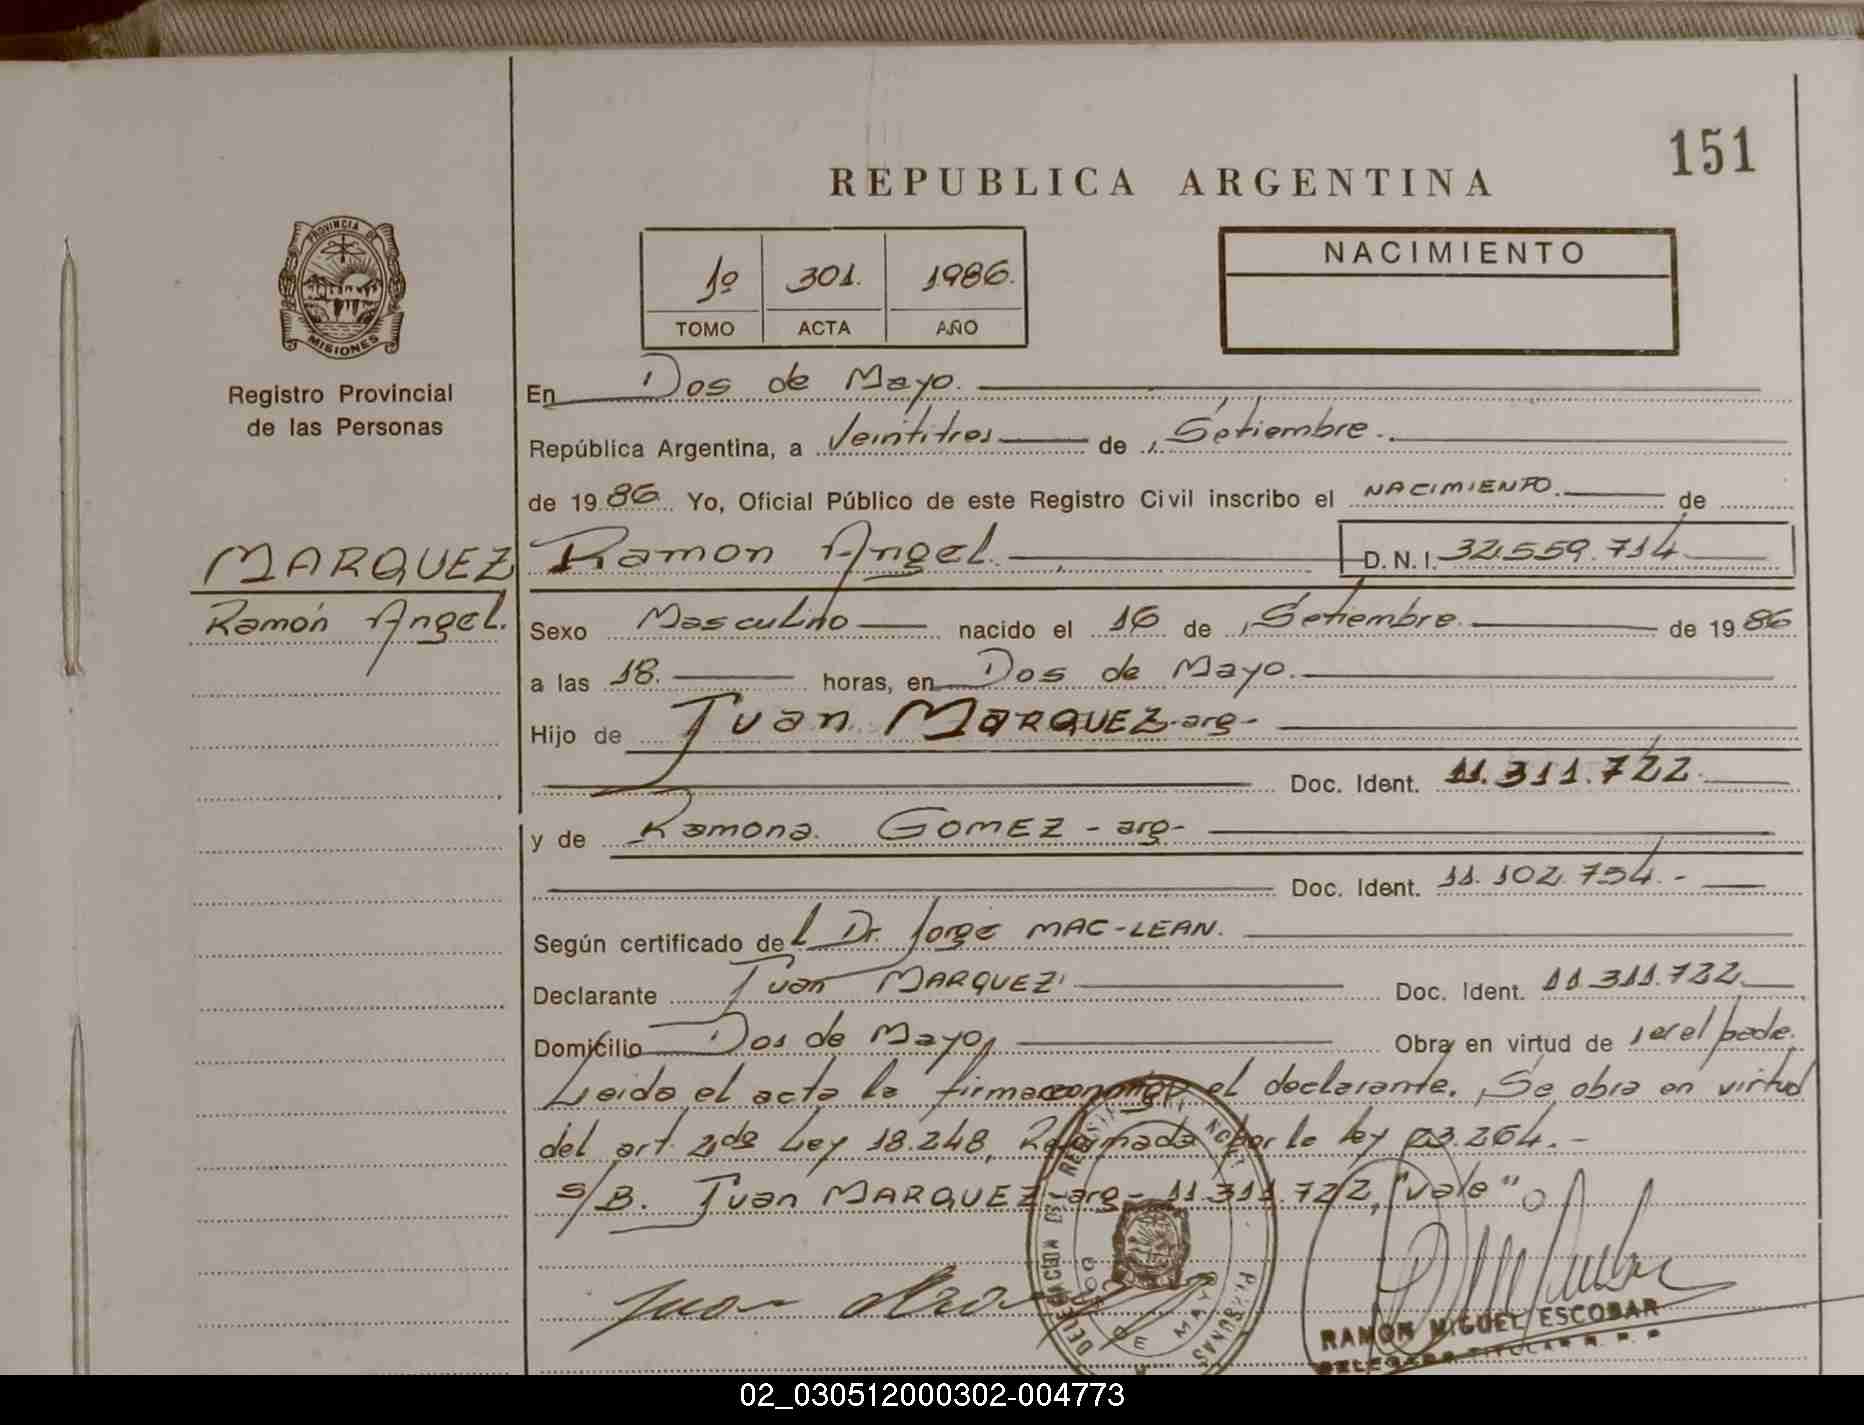 151
REPUBLICA ARGENTINA
PROVINCIA DE
MISIONES
Registro Provincial
de las Personas
1º 301. 1986.
TOMO ACTA AÑO
NACIMIENTO
En Dos de Mayo.
República Argentina, a Veintitres de Setiembre.
de 1986 Yo, Oficial Público de este Registro Civil inscribo el NACIMIENTO. de
MARQUEZ
Ramón Angel.
Ramon Angel. D.N.I. 32.559.714
Sexo Masculino nacido el 16 de Setiembre. de 1986
a las 18. horas, en Dos de Mayo.
Hijo de Juan MARQUEZ-arg-
Doc. Ident. 11.311.722
y de Ramona. GOMEZ - arg-
Doc. Ident. 11.102.754.-
Según certificado del Dr. Jorge MAC-LEAN.
Declarante Juan MARQUEZ Doc. Ident. 11.311.722
Domicilio Dos de Mayo, Obra en virtud de ser el padre.
Leida el acta la firma conmigo el declarante. Se obra en virtud
del art. 2do Ley 18.248, Reformada por la ley 23.264.-
s/B. Juan MARQUEZ-arg- 11.311.722, "vale"
Juan
DELEGACION DEL REGISTRO PERSONAS
DOS DE MAYO
RAMON MIGUEL ESCOBAR
DELEGADO TITULAR R. P. P.
02_030512000302-004773